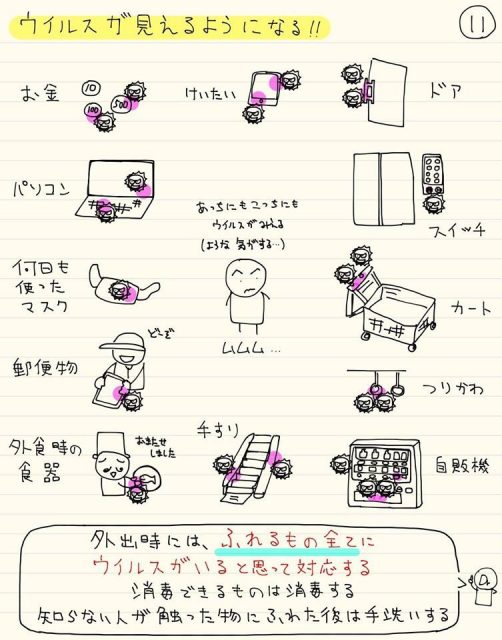 ウイルスが見えるようになる!!
11
お金
10
100
500
けいたい
ドア
パソコン
あっちにもこっちにも
ウイルスがみえる
(ような気がする…)
スイッチ
何日も
使った
マスク
ムムム…
カート
郵便物
どーぞ
つりかわ
外食時の
食器
おまたせ
しました
手すり
自販機
外出時には、ふれるもの全てに
ウイルスがいると思って対応する
消毒できるものは消毒する
知らない人が触った物にふれた後は手洗いする
Dr.